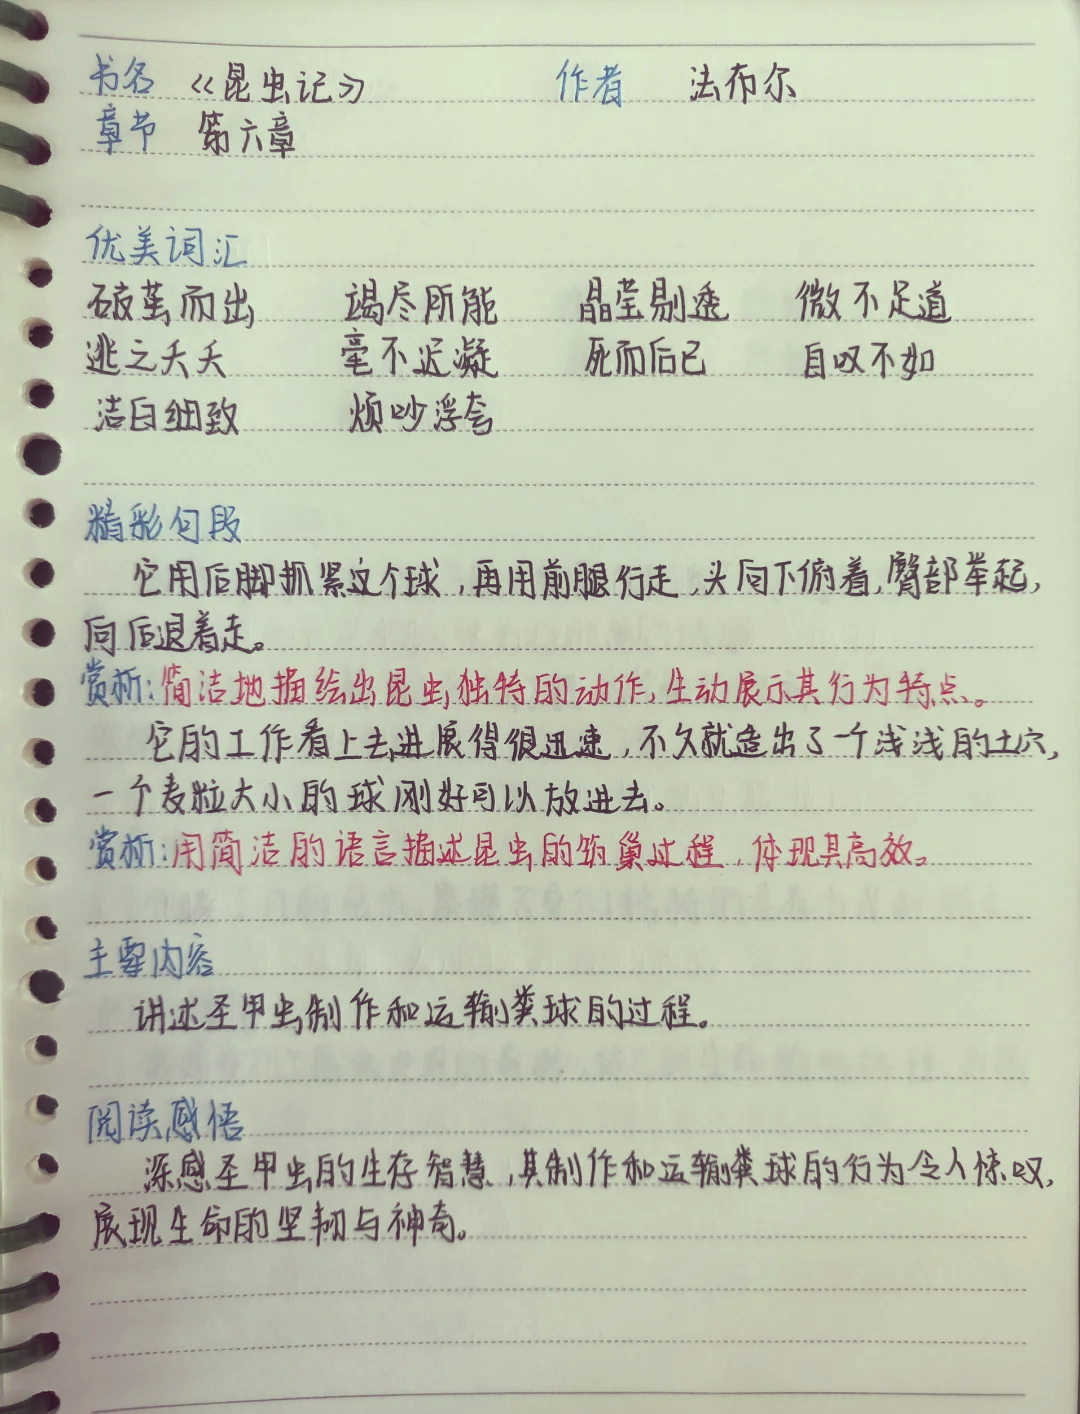 书名 《昆虫记》 作者 法布尔
章节 第六章
优美词汇
破茧而出 竭尽所能 晶莹剔透 微不足道
逃之夭夭 毫不迟凝 死而后已 自叹不如
洁白细致 烦吵浮夸
精彩句段
它用后脚抓紧这个球,再用前腿行走,头向下俯着,臀部举起,
向后退着走。
赏析:简洁地描绘出昆虫独特的动作,生动展示其行为特点。
它的工作看上去进展得很迅速,不久就造出了一个浅浅的土穴,
一个麦粒大小的球刚好可以放进去。
赏析:用简洁的语言描述昆虫的筑巢过程,体现其高效。
主要内容
讲述圣甲虫制作和运输粪球的过程。
阅读感悟
深感圣甲虫的生存智慧,其制作和运输粪球的行为令人惊叹,
展现生命的坚韧与神奇。